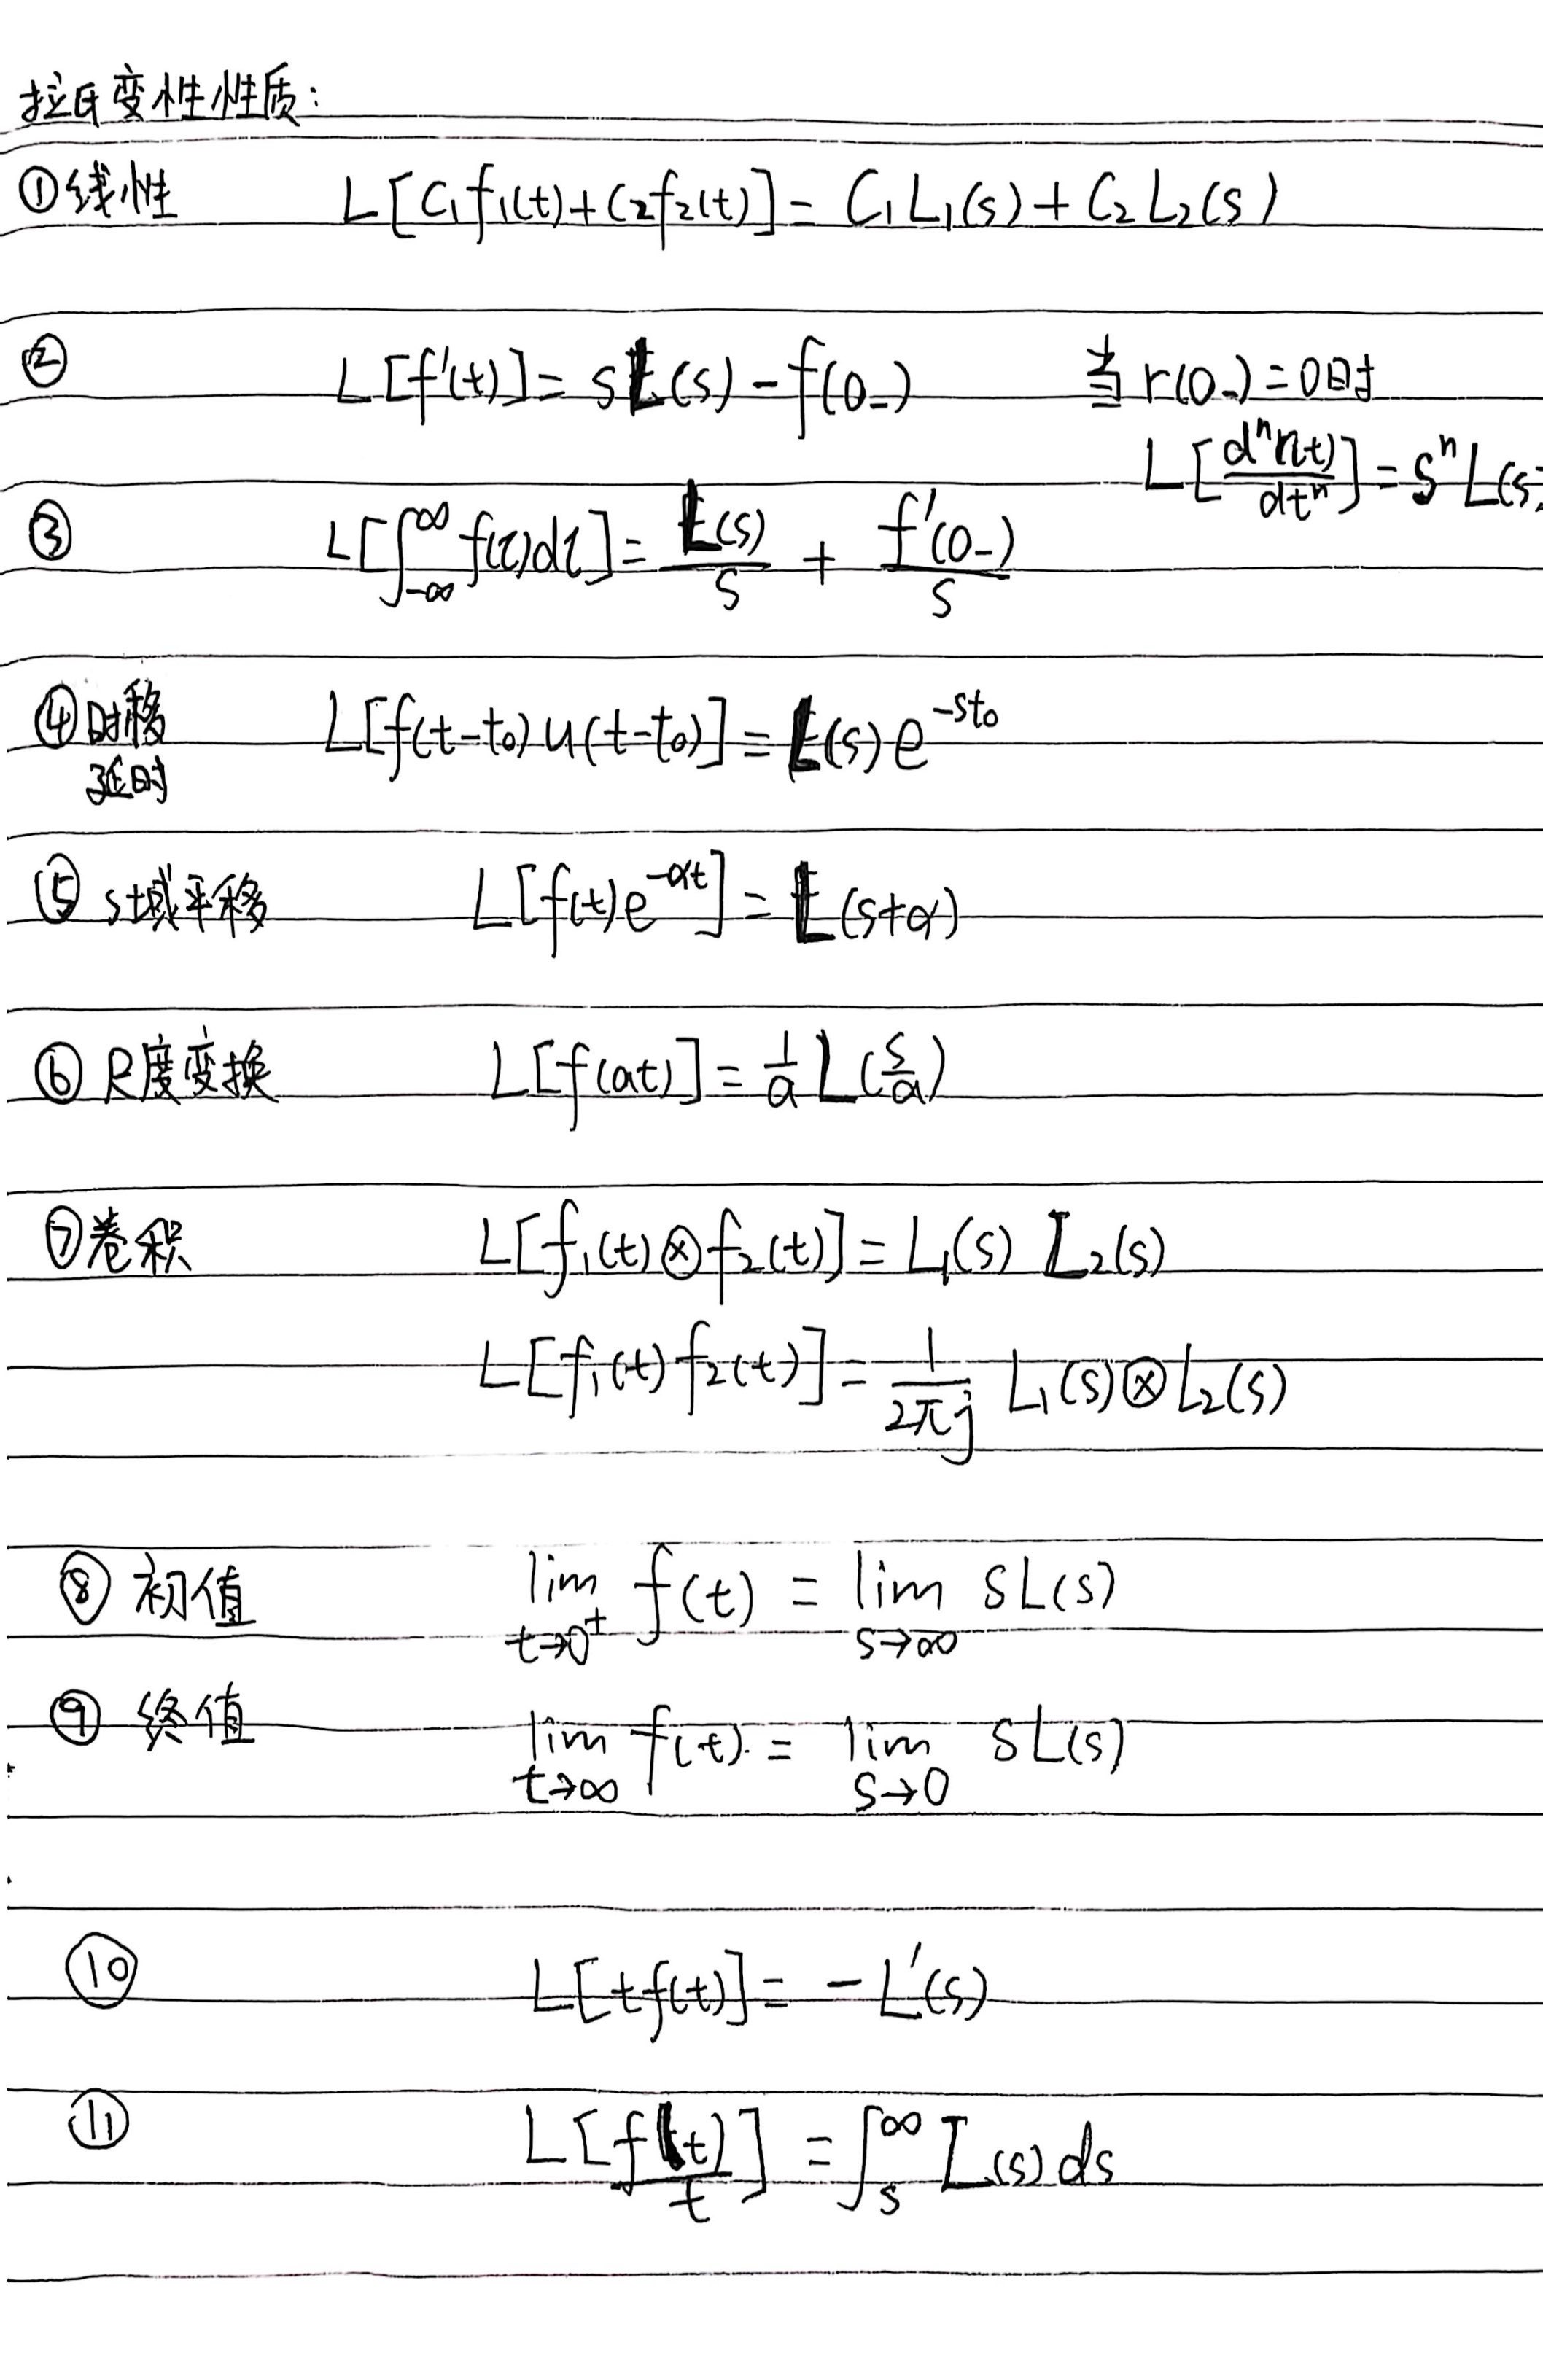 拉氏变性性质:
①线性 L[C₁f₁(t)+C₂f₂(t)]= C₁L₁(s)+C₂L₂(s)
② L[f'(t)]= sL(s)-f(0₋) 当r(0₋)=0时
L[dⁿr(t)/dtⁿ]=sⁿL(s)
③ L[∫_{-∞}^{∞} f(τ)dτ]= L(s)/s + f'(0₋)/s
④时移 L[f(t-t₀)u(t-t₀)]=L(s)e^{-st₀}
延时
⑤ s域平移 L[f(t)e^{-αt}]= L(s+α)
⑥ 尺度变换 L[f(at)]= 1/a L(s/a)
⑦卷积 L[f₁(t)⊗f₂(t)]= L₁(s) L₂(s)
L[f₁(t)f₂(t)]= 1/2πj L₁(s)⊗L₂(s)
⑧ 初值 lim_{t→0⁺} f(t) = lim_{s→∞} sL(s)
⑨ 终值 lim_{t→∞} f(t) = lim_{s→0} sL(s)
⑩ L[tf(t)]= -L'(s)
⑪ L[f(t)/t] = ∫_s^∞ L(s)ds